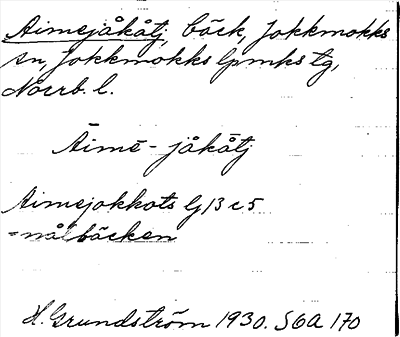 Aimejåkåtj, bäck, Jokkmokks
sn, Jokkmokks lpmks tg,
Norrb. l.
Äimē - jåkåtj
Aimejokkots G 13 c 5
=nålbäcken
H. Grundström 1930. S6A 170